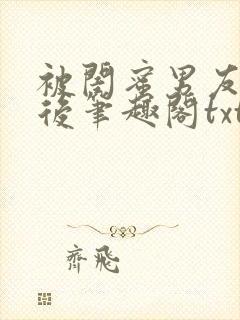 被閤蜜男友
後筆趣閣txt
齊飛